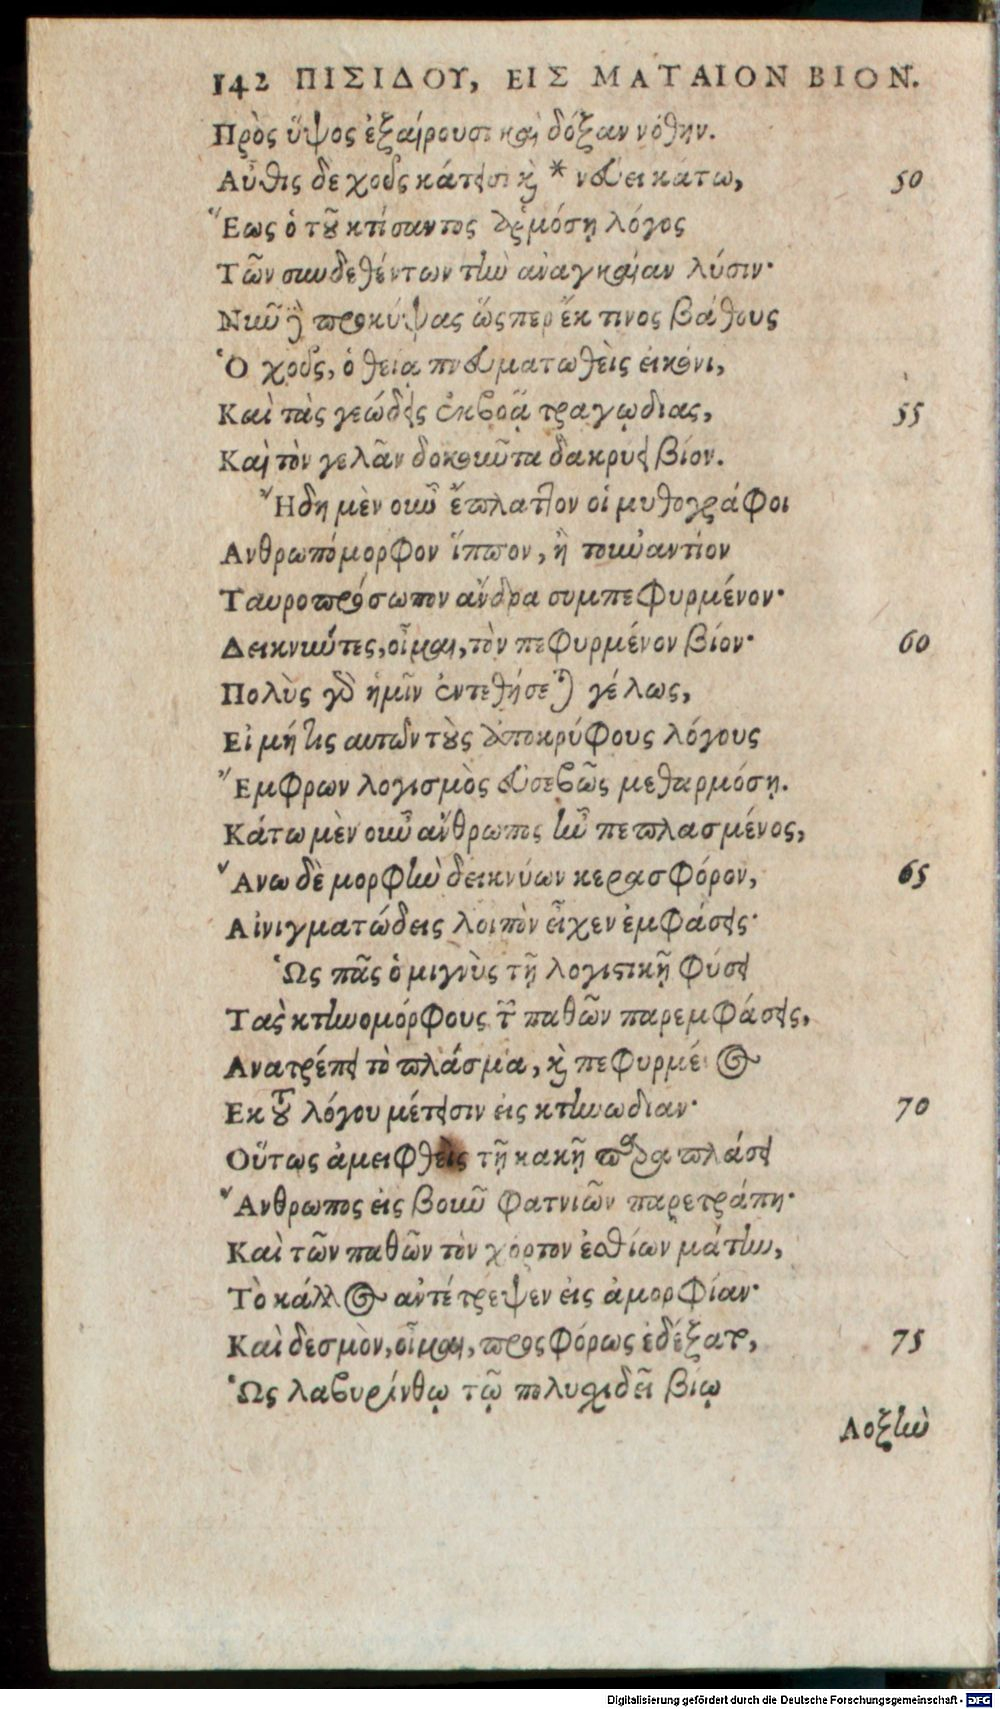 142 ΠΙΣΙΔΟΥ, ΕΙΣ ΜΑΤΑΙΟΝ ΒΙΟΝ.
Πρὸς ὕψος ἐξαίρουσι καὶ δόξαν νόθην.
Αὖθις δε χοῦς κάτεισι καὶ * νεύει κάτω, 50
Ἕως ὁ τοῦ κτίσαντος ἁρμόσῃ λόγος
Τῶν συνδεθέντων τὴν ἀναγκαίαν λύσιν·
Νῦν δὲ προκύψας ὥσπερ ἔκ τινος βάθους
Ὁ χοῦς, ὁ θείᾳ πνευματωθεὶς εἰκόνι,
Καὶ τὰς γεώδεις ἐκβοᾷ τραγῳδιας, 55
Καὶ τὸν γελᾶν δοκοῦντα δακρύει βίον.
Ἤδη μὲν οὖν ἔπλαττον οἱ μυθογράφοι
Ανθρωπόμορφον ἵππον, ἢ τοὐναντίον
Ταυροπρόσωπον ἄνδρα συμπεφυρμένον·
Δεικνῦντες, οἶμαι, τὸν πεφυρμένον βίον· 60
Πολὺς γὸ ἡμῖν ἐντεθήσεται γέλως,
Εἰ μή τις αὐτῶν τοὺς ἀποκρύφους λόγους
Ἔμφρων λογισμὸς εὐσεβῶς μεθαρμόσῃ.
Κάτω μὲν οὖν ἄνθρωπος ἦν πεπλασμένος,
Ἄνω δὲ μορφὴν δεικνύων κερασφόρον, 65
Αἰνιγματώδεις λοιπὸν εἶχεν ἐμφάσεις·
Ὡς πᾶς ὁ μιγνὺς τῇ λογιστικῇ φύσει
Τὰς κτηνομόρφους τῶν παθῶν παρεμφάσεις,
Ανατρέπει τὸ πλάσμα, καὶ πεφυρμένος
Εκ τοῦ λόγου μέτεισιν εἰς κτηνωδιαν· 70
Οὕτως ἀμειφθεὶς τῇ κακῇ παραπλάσει
Ἄνθρωπος εἰς βοῦν φατνιῶν παρετράπη·
Καὶ τῶν παθῶν τὸν χόρτον ἐσθίων μάτην,
Τὸ κάλλος ἀντέτρεψεν εἰς ἀμορφίαν·
Καὶ δεσμὸν, οἶμαι, προςφόρως ἐδέξατο, 75
Ὡς λαβυρίνθῳ τῷ πολυσχιδεῖ βίῳ
Λοξὴν
Digitalisierung gefördert durch die Deutsche Forschungsgemeinschaft - DFG